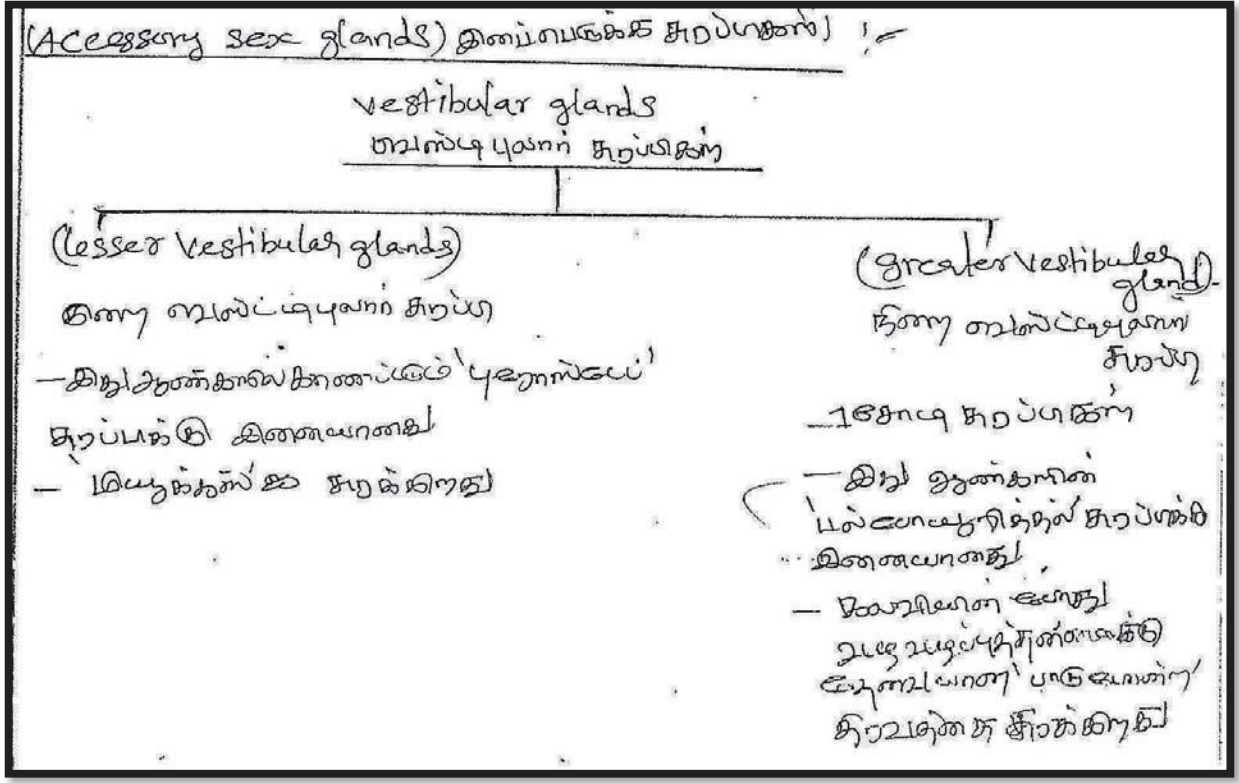 (Accessory sex glands) இனப்பெருக்க சுரப்பிகள்) :-
vestibular glands
வெஸ்டிபுலார் சுரப்பிகள்
(lesser vestibular glands)
குறை வெஸ்ட்டிபுலார் சுரப்பி
- இது ஆண்களில் காணப்படும் 'புரோஸ்டேட்'
சுரப்பிக்கு இணையானது
- 'மியூக்கஸ்' ஐ சுரக்கிறது
(greater vestibular
gland)
நிறை வெஸ்ட்டிபுலார்
சுரப்பி
- 1சோடி சுரப்பிகள்
- இது ஆண்களின்
'பல்போயூரித்ரல்' சுரப்பிக்கு
இணையானது
- கலவியின் போது
வழுவழுப்புத்தன்மைக்கு
தேவையான 'பாகு போன்ற'
திரவத்தை சுரக்கிறது